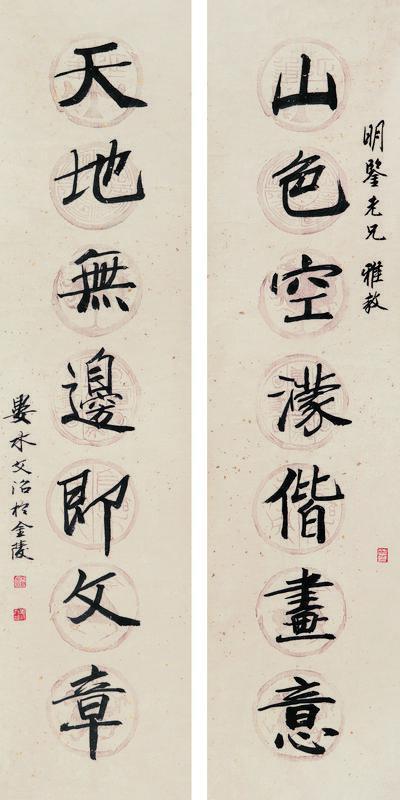 明鑒老兄 雅教
山色空濛偕畫意
天地無邊即文章
婁水文治於金陵